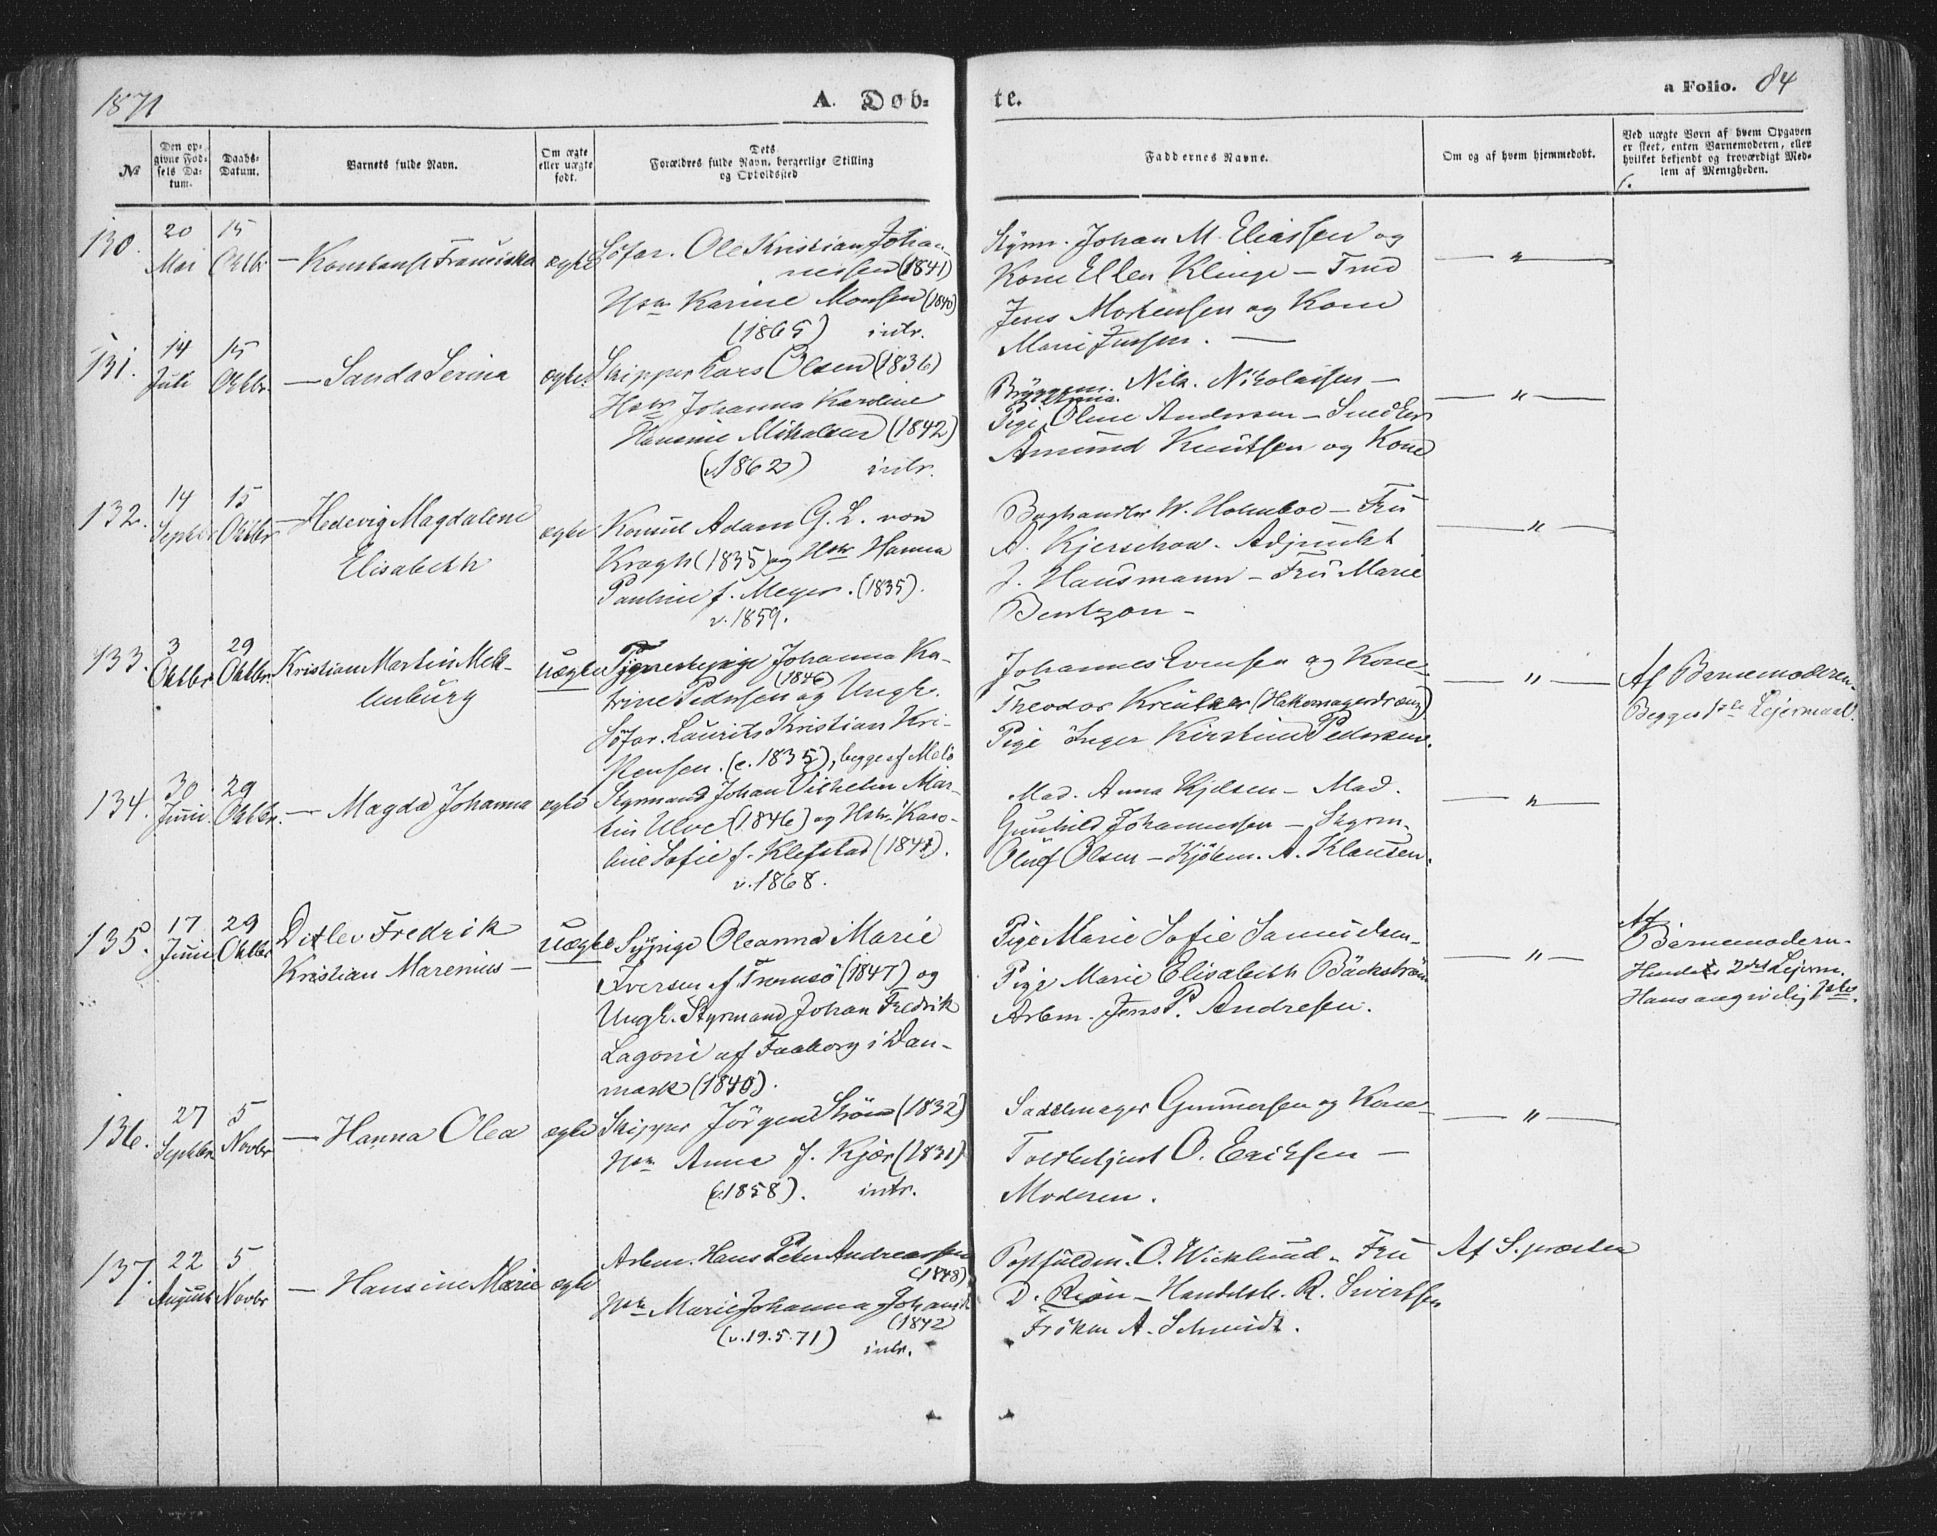 1871
A. Døb-
te.
a Folio. 84
№
Den op-
givne Fød-
sels Da-
tum.
Daabs-
Datum.
Barnets fulde Navn.
Om ægte
eller uægte
født.
Dets
Forældres fulde Navn, borgerlige Stilling
og Opholdssted
Faddernes Navne.
Om og af hvem hjemmedøbt.
Ved uægte Børn af hvem Opgaven
er skeet, enten Barnemoderen, eller
hvilket bekjendt og troværdigt Med-
lem af Menigheden.
130.
20
Mai
15
Oktbr
— Konstanse Franciska
ægte
Söfar. Ole Kristian Johan-
nessen (1841)
Hstr Karine Monsen (1840)
(1865) intr.
Styrm. Johan M. Eliassen og
Kone Ellen Klinge —
Jens Mortensen og Kone
Marie Jensen. —
— „ —
131.
14
Juli
15
Oktbr.
— Sanda Serina
ægte
Skipper Lars Olsen (1836)
Hstr Johanna Karoline
Hansine Mikalsen (1842)
(1862) intr.
Nils. Nikolaisen —
Pige Oline Andersen —
Amund Knutsen og Kone
— „ —
132.
14
Septbr
15
Oktbr
— Hedevig Magdalene
Elisabeth
ægte
Konsul Adam G. L. von
Krogh (1835) og Hstr Hanna
Pauline f. Meyer. (1835).
v. 1859.
Boghandler W. Holmboe — Fru
A. Kjerschow. Adjunkt
J. Hausmann — Fru Marie
Bentzon —
— „ —
133.
3
Oktbr.
29
Oktbr.
Kristian Martin Mek-
lenburg
uægte
Tjenestepige Johanna Ka-
(1846)
trine Pedersen og Ungk.
Söfar. Laurits Kristian Kri-
stensen. (c. 1835), begge af
Johannes Evensen og Kone
Theodor Kreutzer (Hattemagerdreng)
Pige Inger Kirstine Pedersen.
— „ —
Af Barnemoderen.
Begges 1ste Lejermaal.
134.
30
Juni.
29
Oktbr.
— Magda Johanna
ægte
Styrmand Johan Vilhelm Mar-
tin Ulve (1846) og Hstr. Karo-
line Sofie f. Klefstad (1841).
v. 1868.
Mad. Anna Kjelsen — Mad.
Gunhild Johannessen — Styrm.
Oluf Olsen — Kjöbm. A. Klausen.
— „ —
135.
17
Juni
29
Oktbr
Ditlev Fredrik
Kristian Marenius —
uægte
Sypige Oleanna Marie
Iversen af Tromsö (1847) og
Ungk. Styrmand Johan Fredrik
Lagoni af Faaborg i Dan-
mark (1840).
Pige Marie Sofie Samuelsen —
Pige Marie Elisabeth Bäckström
Arbm. Jens P. Andresen.
— „ —
Af
Barnemodern.
Hendes 2det Lejerm.
Hans angivelig 1ste.
136.
27
Septbr
5
Novbr
— Hanna Olea
ægte
Skipper Jörgen Ström (1832)
Hstr Anna f. Kjær (1831)
(v. 1858). intr.
Sadelmager Gunnersen og Kone —
Toldbetjent O. Eriksen —
Moderen.
— „ —
137.
22
August
5
Novbr
— Hansine Marie
ægte
Arbm. Hans Peter Andreassen
(1848)
Hstr Marie Johanna Johansd.
(1842
(v. 19.5.71) intr.
Postfuldm. O. Wicklund — Fru
D. — Handelsb. R. Sivertsen
Fröken A. Schmidt.
Af S. præsten